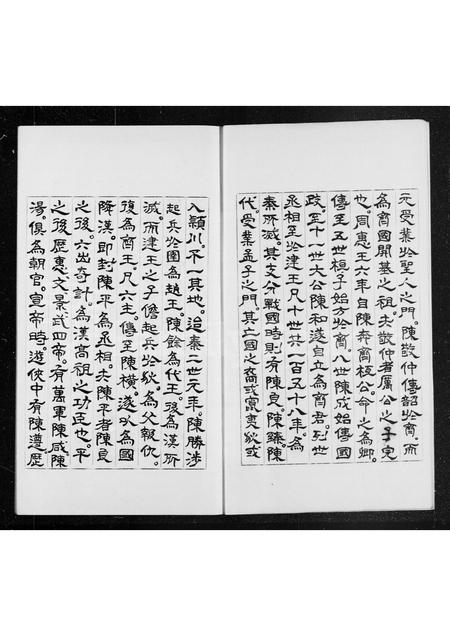 元受業於聖人之門。陳敬仲傳韶於齊。而
為齊國開基之祖。夫敬仲者厲公之子完
也。周惠王六年自陳奔齊桓公。命之為卿。
傳至五世桓子始方於齊八世陳成始傳國
政。至十一世大公陳和遂自立為齊君。列世
丞相至於建王凡十世共一百五十八年為
秦所滅。其支分戰國時則有陳良。陳臻。陳
代。受業孟子之門。其亡國之裔或寓夷狄或
入潁川。不一其地。迨秦二世元年。陳勝涉
起兵於圉為趙王。陳餘為代王。後為漢所
滅。而建王之子儋起兵於狄。為父報仇。
復為齊王凡六主。傳至陳橫。遂以為國
降漢。即封陳平為丞相。夫陳平者陳良
之後。六出奇計。為漢高祖之功臣也。平
之後歷惠文景武四帝。有萬軍陳咸陳
湯。俱為朝官。宣帝時。遊俠中有陳遵歷